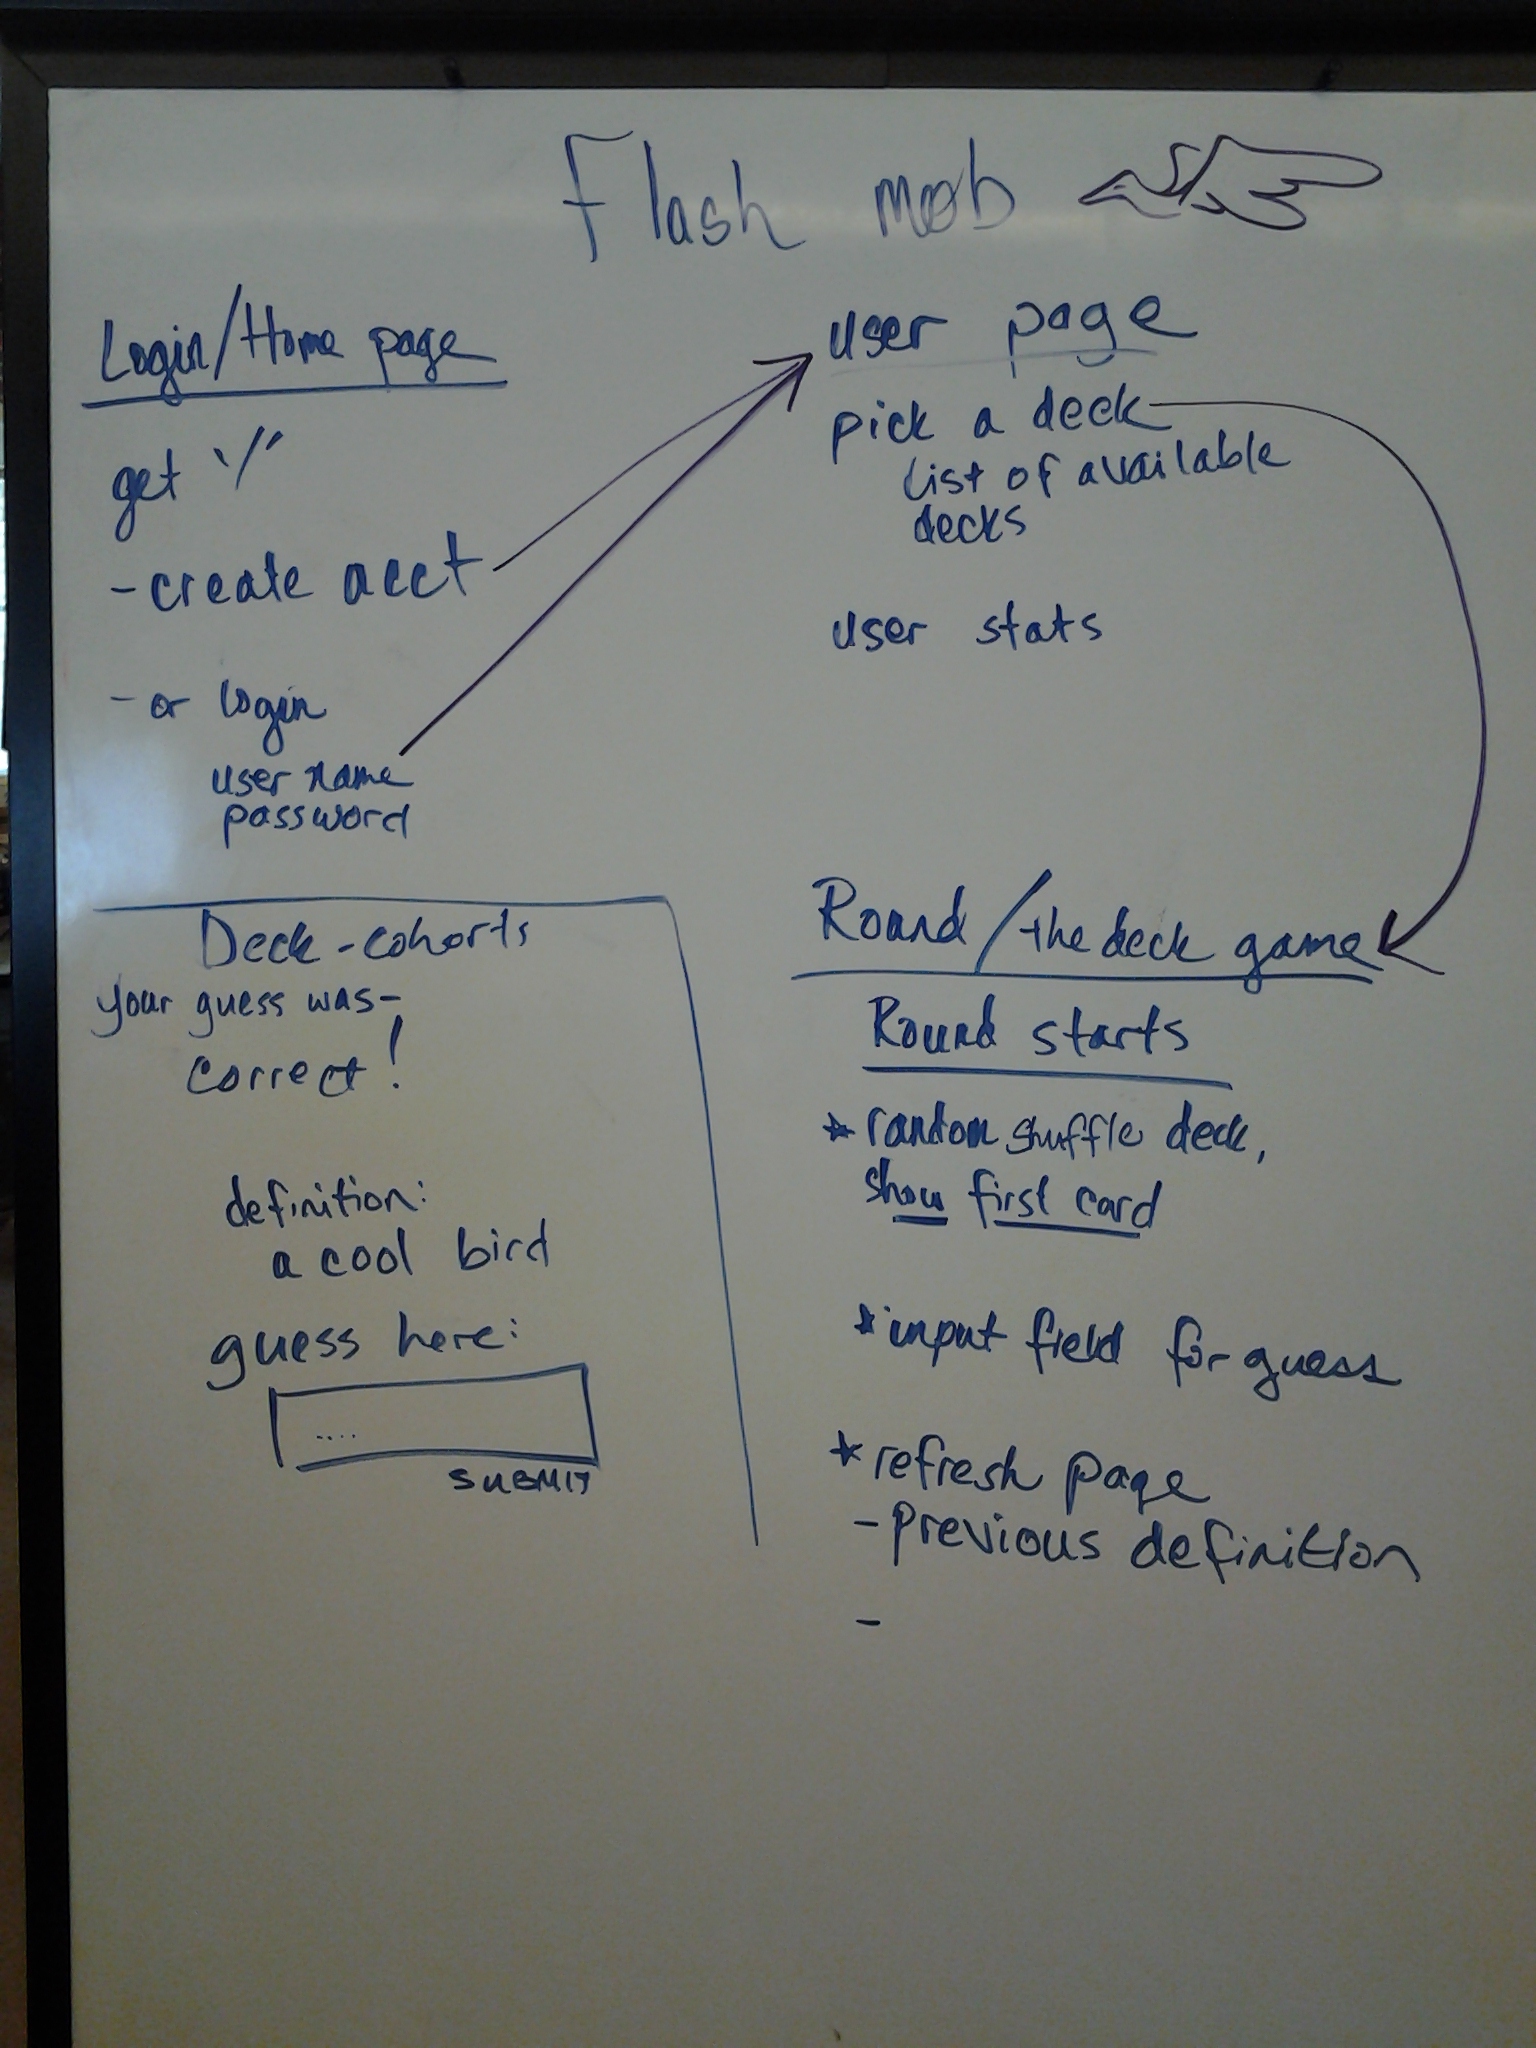 Flash mob
Login/Home page
get '/'
- create acct
- or login
user name
password
user page
pick a deck
list of available
decks
user stats
Deck - cohorts
your guess was -
correct!
definition:
a cool bird
guess here:
....
SUBMIT
Round / the deck game
Round starts
* random shuffle deck,
show first card
* input field for guess
* refresh page
- previous definition
-